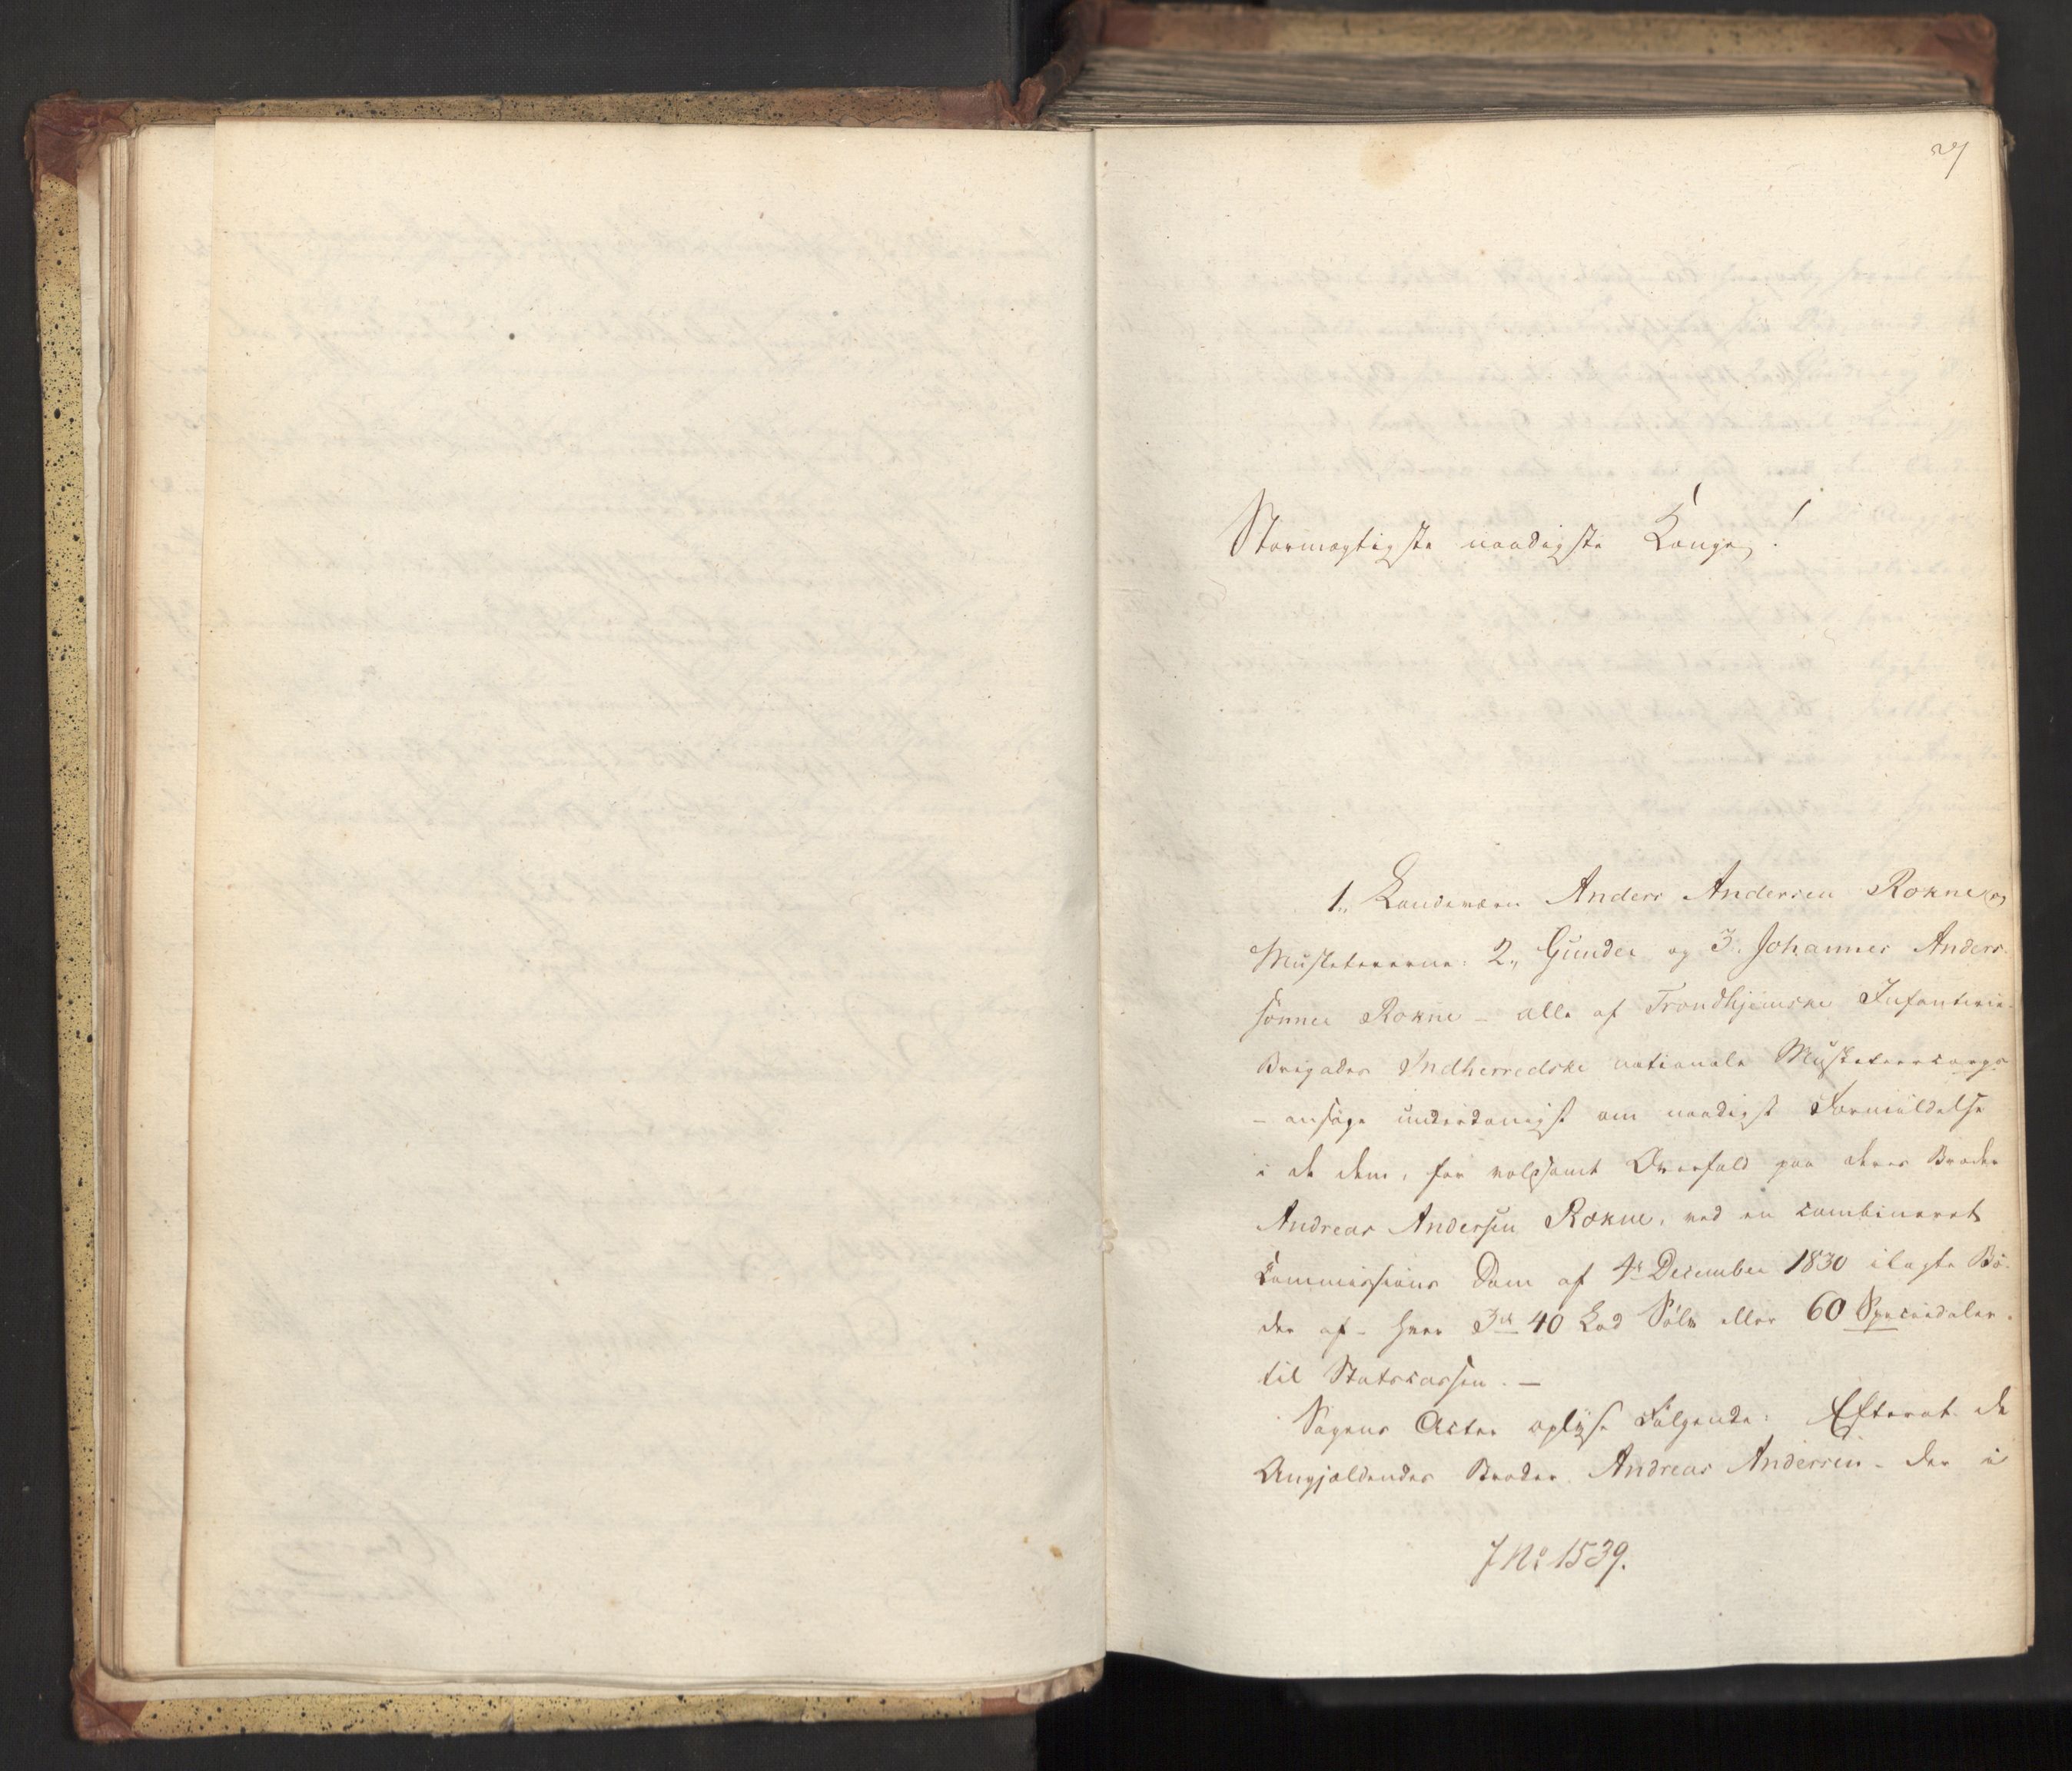 27
Stormægtigste naadigste Konge!
1., Landeværn Anders Andersen Rokne og
Musketererne: 2., Gunder og 3., Johannes Anders-
sønner Rokne – alle af Trondhjemske Infanterie-
Brigades Indherredske nationale Musketeercorps
– ansøge underdanigst om naadigst Formildelse
i de dem, for voldsomt Overfald paa deres Broder
Andreas Andersen Rokne, ved en combineret
Commissions Dom af 4de December 1830 ilagte Bø-
der af – hver 3de 40 Lod Sølv eller 60 Speciedaler
til Statscassen. –
Sagens Acter oplyse Følgende: Efterat de
Angjældendes Broder Andreas Andersen – der i
J No 1539.